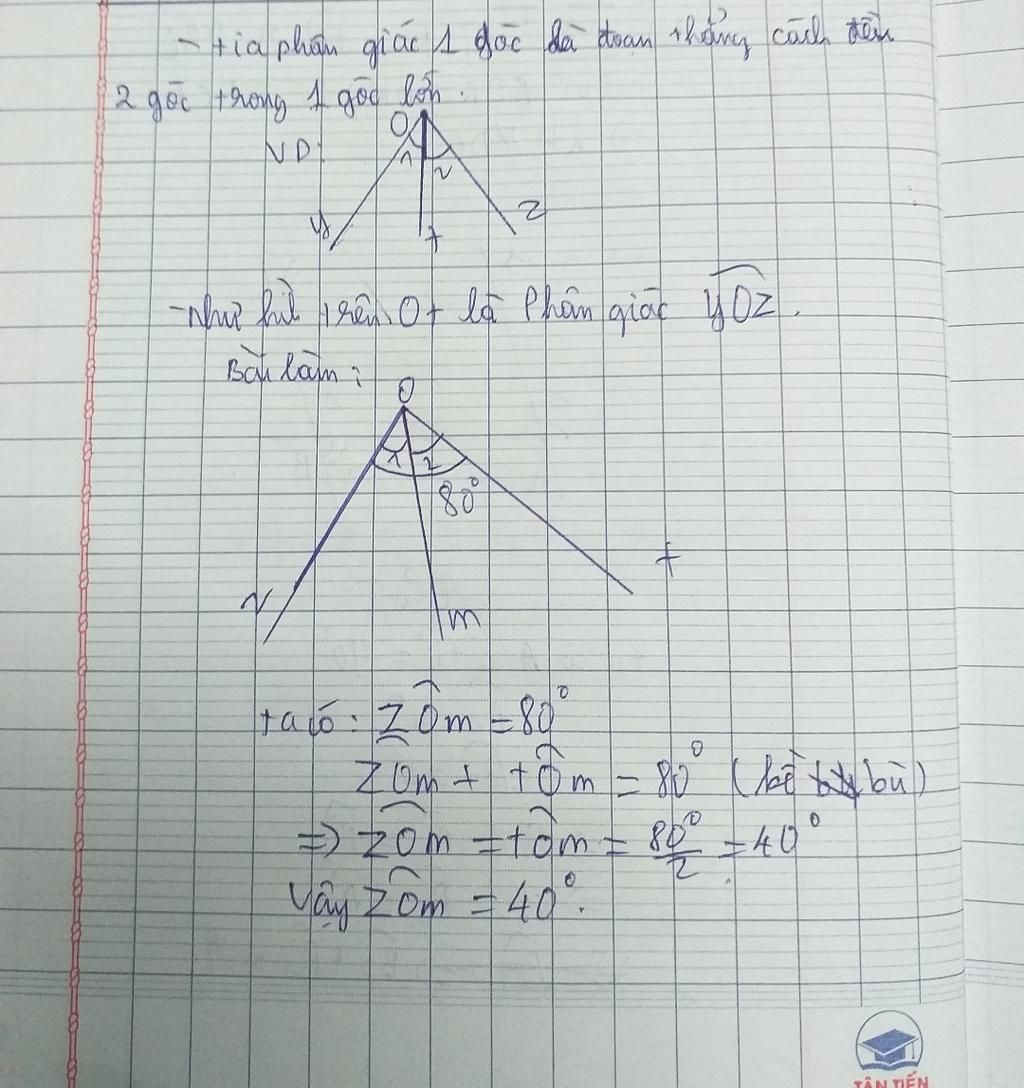 - tia phân giác 1 góc là đoạn thẳng cách đều
2 góc trong 1 góc lớn.
VD:
O
1 2
y t z
- Như hìh trên Ot là Phân giác yOz.
Bài làm:
O
1 2
80°
z m t
ta có: zOm = 80°
zOm + tOm = 80° (kề bù)
=> zOm = tOm = 80°/2 = 40°
Vậy zOm = 40°.
TÂN TIẾN